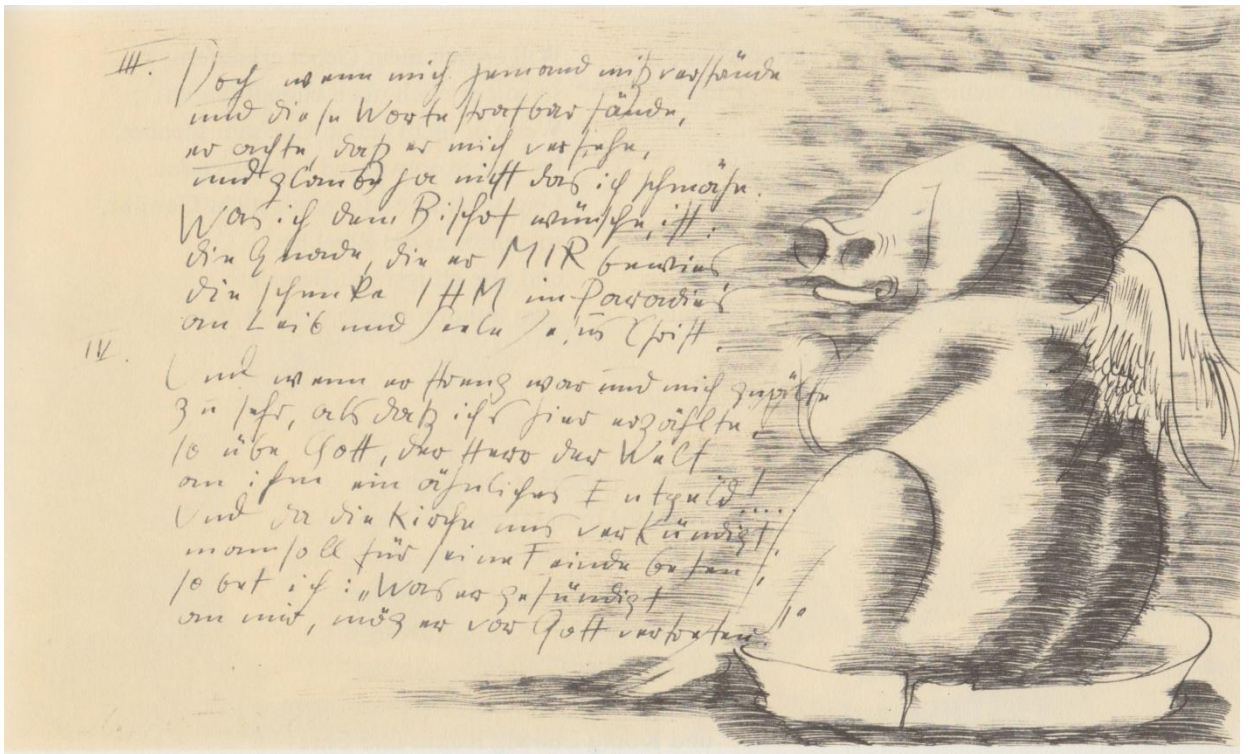 III.
Doch wenn mich jemand mißverstände
und diese Worte strafbar fände,
er achte, daß er mich versehe,
und glaube ja nicht das ich schmähe.
Was ich dem Bischof wünsche, ist:
die Gnade, die er MIR bewies
die schenke IHM im Paradies
an Leib und Seele Jesus Christ.
IV.
Und wenn er streng war und mich quälte
zu sehr, als daß ichs hier erzählte,
so übe Gott, der Herr der Welt
an ihm ein ähnliches Entgeld!....
Und da die Kirche uns verkündigt,
man soll für seine Feinde beten,
so bet ich: „Was er gesündigt
an mir, mög er vor Gott vertreten!"